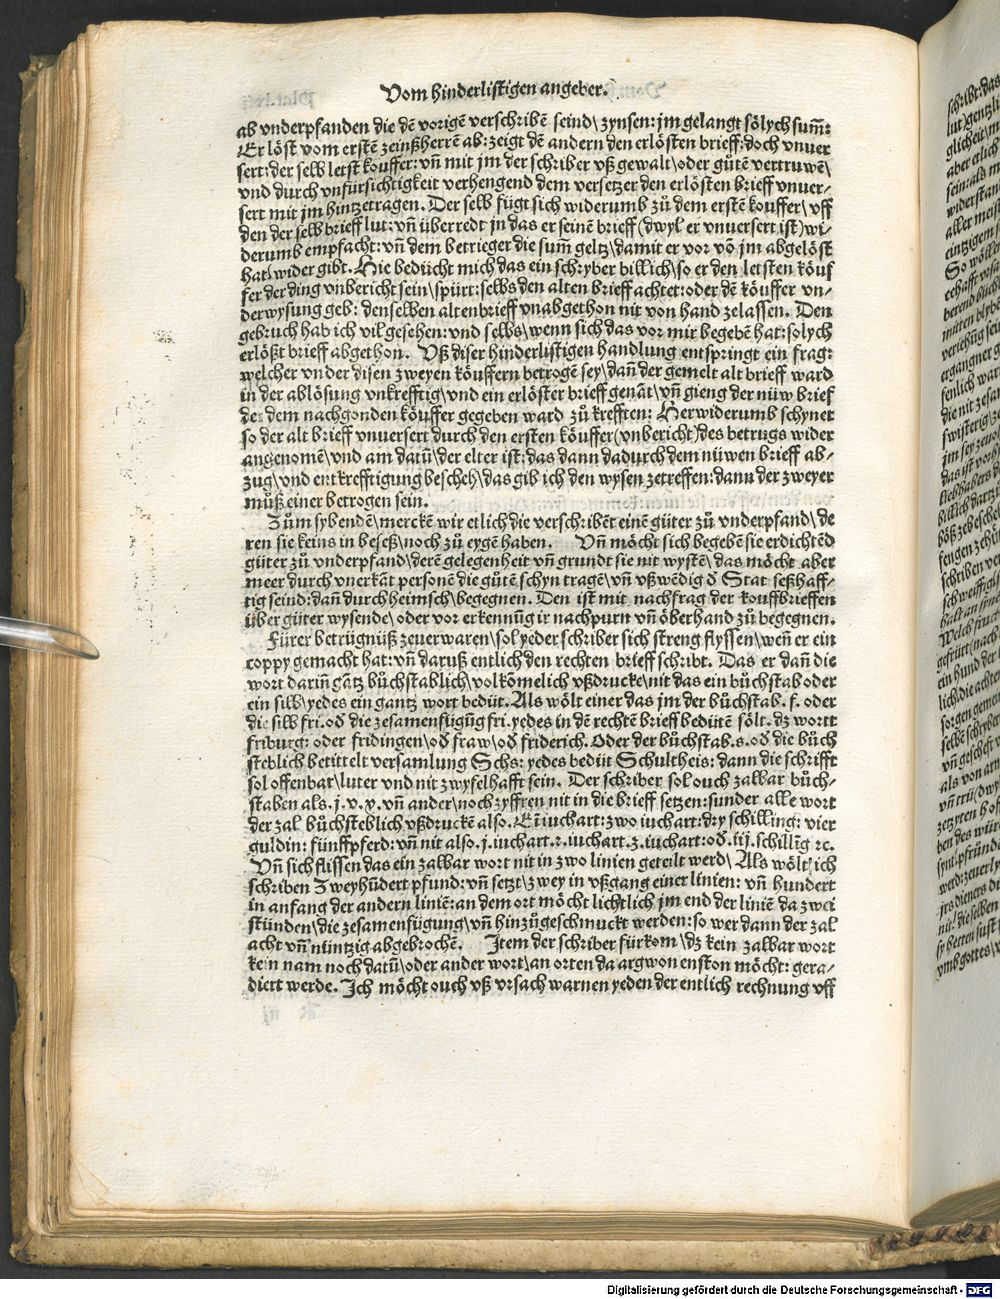 Vom hinderlistigen angeber.
ab vnderpfanden die dē vorigē verschribē seind\ zynsen: jm gelangt sölych sum̃:
Er löst vom erstē zeinßherrē ab: zeigt dē andern den erlösten brieff: doch vnuer
sert: der selb letst kouffer: vñ mit jm der schriber vß gewalt\ oder gůtē vertruwē\
vnd durch vnfürsichtigkeit verhengend dem versetzer den erlösten brieff vnuer-
sert mit jm hintzetragen. Der selb fůgt sich widerumb zů dem erstē kouffer\ vff
den der selb brieff lut: vñ überredt jn das er seinē brieff (dwyl er vnuersert ist) wi-
derumb empfacht: vñ dem betrieger die sum̃ geltz\ damit er vor vō jm abgelöst
hat\ wider gibt. Hie bedücht mich das ein schryber billich\ so er den letsten köuf
fer der ding vnbericht sein\ spürt: selbs den alten brieff achtet: oder dē köuffer vn-
derwysung geb: denselben altenbrieff vnabgethon nit von hand zelassen. Den
gebruch hab ich vil gesehen: vnd selbs\ wenn sich das vor mir begebē hat: solych
erlößt brieff abgethon. Vß diser hinderlistigen handlung entspringt ein frag:
welcher vnder disen zweyen köuffern betrogē sey\ dañ der gemelt alt brieff ward
in der ablösung vnkrefftig\ vnd ein erlöster brieff genāt\ vñ gieng der nüw brief
der dem nachgonden köuffer gegeben ward zů krefften: Herwiderumb schynet
so der alt brieff vnuersert durch den ersten köuffer (vnbericht) des betrugs wider
angenomē\ vnd am datū\ der elter ist: das dann dadurch dem nüwen brieff ab-
zug\ vnd entkrefftigung bescheh\ das gib ich den wysen zetreffen: dann der zweyer
můß einer betrogen sein.
Zům sybendē\ merckē wir etlich die verschribēt einē gůter zů vnderpfand\ de
ren sie keins in beseß\ noch zů eygē haben. Vñ möcht sich begebē sie erdichtēd
gůter zů vnderpfand\ derē gelegenheit vñ grundt sie nit wystē\ das möcht aber
meer durch vnerkāt personē die gůtē schyn tragē\ vñ vßwēdig d̄ Stat seßhaff-
tig seind: dañ durch heimsch\ begegnen. Den ist mit nachfrag der kouffbrieffen
über gůter wysende\ oder vor erkennūg ir nachpurn vñ öberhand zů begegnen.
Fürer betrügnüß zeuerwaren\ sol yeder schriber sich streng flyssen\ weñ er ein
coppy gemacht hat: vñ daruß entlich den rechten brieff schribt. Das er dañ die
wort dariñ gātz bůchstablich\ volkōmelich vßdrucke\ nit das ein bůchstab oder
ein silb\ yedes ein gantz wort bedüt. Als wölt einer das jm der bůchstab. f. oder
die silb fri. od̄ die zesamenfügūg fri. yedes in dē rechtē brieff bedütē sölt. dz wortt
friburg: oder fridingen\ od̄ fraw\ od̄ friderich. Oder der bůchstab. s. od̄ die bůch
steblich betittelt versamlung Schs: yedes bedüt Schultheis: dann die schrifft
sol offenbar\ luter vnd nit zwyfelhafft sein. Der schriber sol ouch zalbar bůch-
staben als. j. v. y. vñ ander\ noch zyffren nit in die brieff setzen: sunder alle wort
der zal bůchsteblich vßdruckē also. Eī iuchart: zwo iuchart: dry schilling: vier
guldin: fünffpferd: vñ nit also. j. iuchart. z. iuchart. 3. iuchart: od̄. iij. schillīg ꝛc.
Vñ sich flissen das ein zalbar wort nit in zwo linien geteilt werd\ Als wölt ich
schriben Zweyhūdert pfund: vñ setzt\ zwey in vßgang einer linien: vñ hundert
in anfang der andern liniē: an dem ort möcht lichtlich jm end der liniē da zwei
stůnden\ die zesamenfügung\ vñ hinzůgeschmuckt werden: so wer dann der zal
acht vñ nüntzig abgebrochē. Item der schriber fürkom\ dz kein zalbar wort
kein nam noch datū\ oder ander wort\ an orten da argwon enston möcht: gera-
diert werde. Ich möcht ouch vß vrsach warnen yeden der entlich rechnung vff
Digitalisierung gefördert durch die Deutsche Forschungsgemeinschaft - DFG